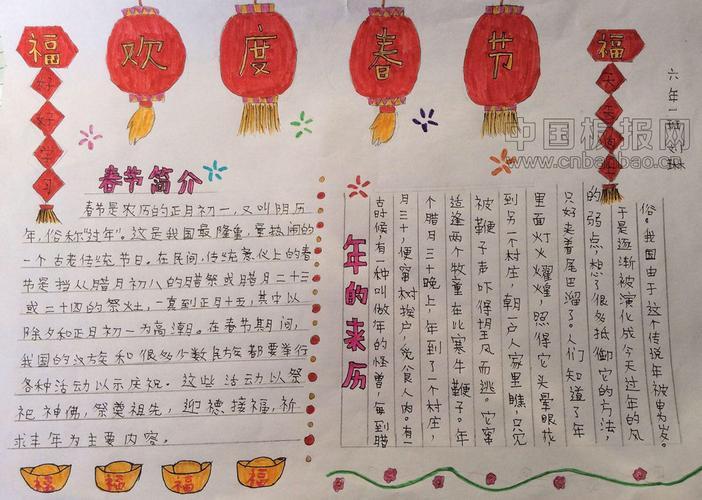 福
好好学习
欢度春节
福
天天向上
中国板报网
www.cnbanbao.cn
六年一班
春节简介
春节是农历的正月初一，又叫阴历
年，俗称"过年"。这是我国最隆重，最热闹的
一个古老传统节日。在民间，传统意义上的春
节是指从腊月初八的腊祭或腊月二十三
或二十四的祭灶，一直到正月十五，其中以
除夕和正月初一为高潮。在春节期间，
我国的汉族和很多少数民族都要举行
各种活动以示庆祝。这些活动以祭
祀神佛，祭奠祖先，迎德接福，祈
求丰年为主要内容。
年的来历
古时候，有一种叫做年的怪兽，每到腊
月三十，便窜村挨户，觅食人肉。有一
个腊月三十晚上，年到了一个村庄，
适逢两个牧童在比寒牛鞭子。年
被鞭子声吓得望风而逃。它窜
到另一个村庄，朝一户人家里瞧，只见
里面灯火煌，照得它头晕眼花，
只好夹着尾巴溜了。人们知道了年
的弱点，想了很多抵御它的方法，
于是逐渐被演化成今天过年的风
俗。我国由于这个传说年被为岁。
福
福
福
福